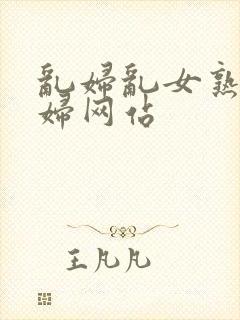 乱婦乱女熟
婦网站
王凡凡